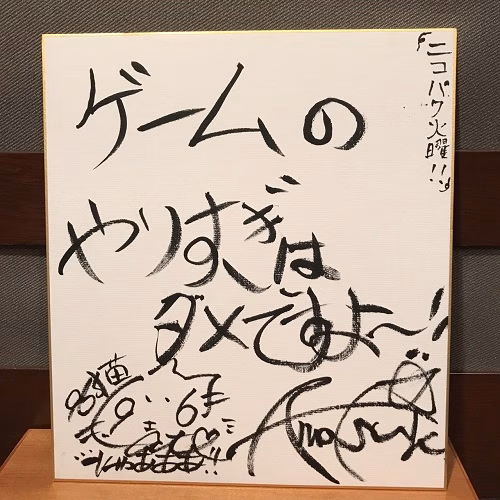 『ニコパク火曜!!』
ゲームの
やりすぎは
ダメですよ〜!